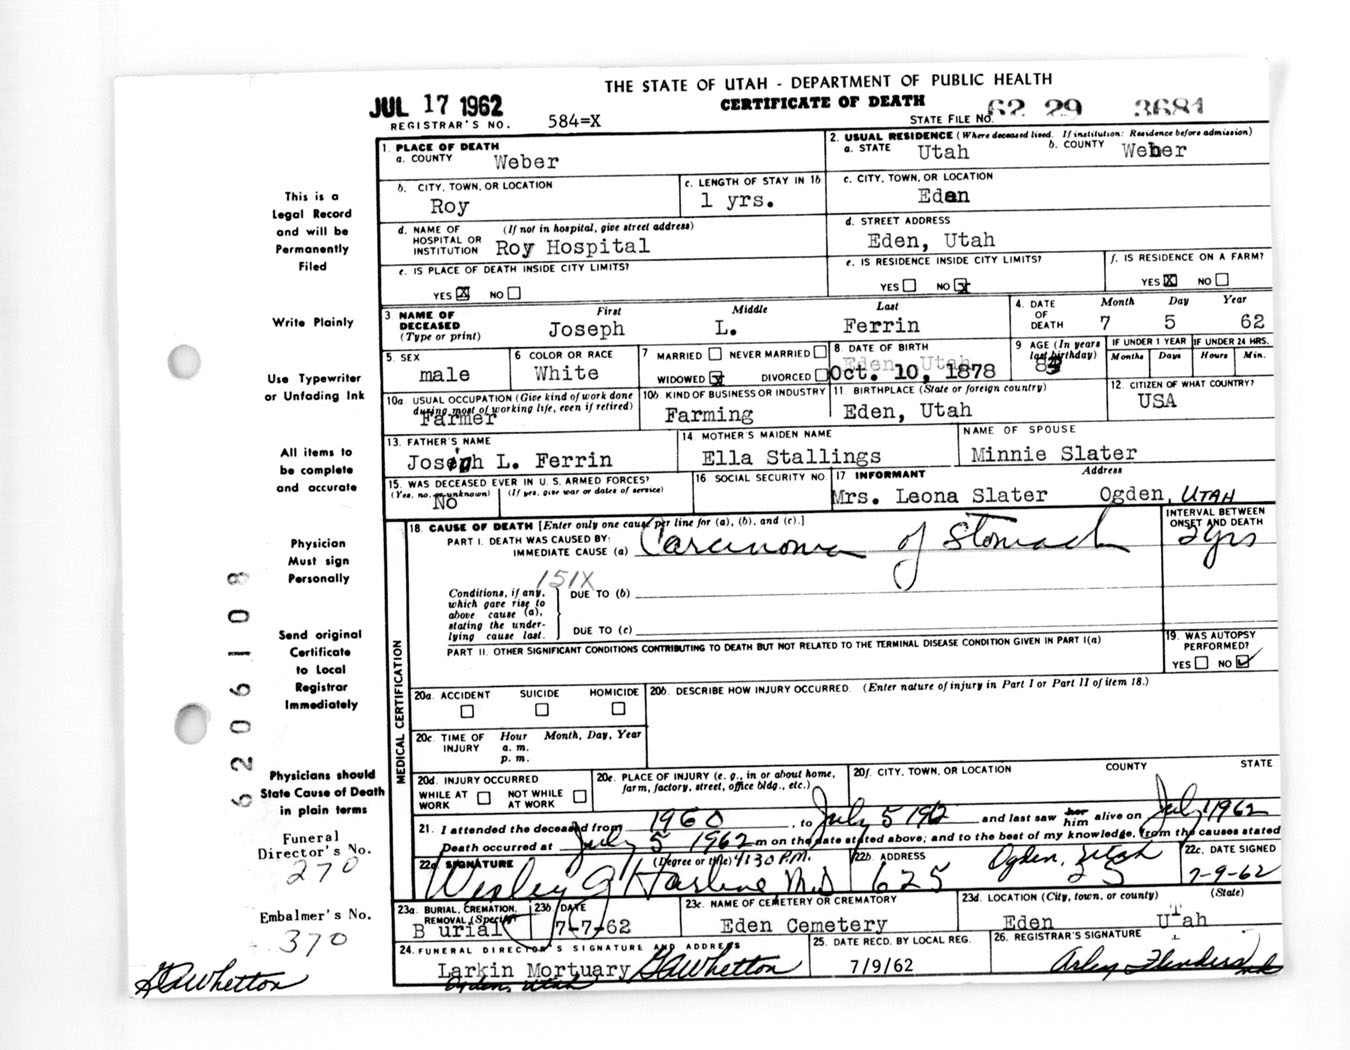 THE STATE OF UTAH - DEPARTMENT OF PUBLIC HEALTH
JUL 17 1962
CERTIFICATE OF DEATH
REGISTRAR'S NO. 584=X
STATE FILE NO. 62 29 3681
1. PLACE OF DEATH
a. COUNTY Weber
2. USUAL RESIDENCE (Where deceased lived. If institution: Residence before admission)
a. STATE Utah b. COUNTY Weber
b. CITY, TOWN, OR LOCATION Roy
c. LENGTH OF STAY IN 1b 1 yrs.
c. CITY, TOWN, OR LOCATION Eden
d. NAME OF HOSPITAL OR INSTITUTION (If not in hospital, give street address) Roy Hospital
d. STREET ADDRESS Eden, Utah
e. IS PLACE OF DEATH INSIDE CITY LIMITS?
YES X NO
e. IS RESIDENCE INSIDE CITY LIMITS?
YES NO X
f. IS RESIDENCE ON A FARM?
YES X NO
3. NAME OF DECEASED (Type or print)
First Middle Last
Joseph L. Ferrin
4. DATE OF DEATH
Month Day Year
7 5 62
5. SEX male
6 COLOR OR RACE White
7 MARRIED NEVER MARRIED
WIDOWED X DIVORCED
8. DATE OF BIRTH
Eden, Utah
Oct. 10, 1878
9 AGE (In years last birthday) 83
IF UNDER 1 YEAR IF UNDER 24 HRS.
Months Days Hours Min.
10a. USUAL OCCUPATION (Give kind of work done during most of working life, even if retired) Farmer
10b. KIND OF BUSINESS OR INDUSTRY Farming
11. BIRTHPLACE (State or foreign country) Eden, Utah
12. CITIZEN OF WHAT COUNTRY? USA
13. FATHER'S NAME Joseph L. Ferrin
14. MOTHER'S MAIDEN NAME Ella Stallings
NAME OF SPOUSE Minnie Slater
15. WAS DECEASED EVER IN U.S. ARMED FORCES?
(Yes, no, or unknown) (If yes, give war or dates of service)
No
16. SOCIAL SECURITY NO.
17. INFORMANT Address
Mrs. Leona Slater Ogden, UTAH
18. CAUSE OF DEATH [Enter only one cause per line for (a), (b), and (c).]
INTERVAL BETWEEN ONSET AND DEATH
PART I. DEATH WAS CAUSED BY:
IMMEDIATE CAUSE (a) Carcinoma of Stomach 2 yrs
151X
Conditions, if any, which gave rise to above cause (a), stating the underlying cause last.
DUE TO (b)
DUE TO (c)
PART II. OTHER SIGNIFICANT CONDITIONS CONTRIBUTING TO DEATH BUT NOT RELATED TO THE TERMINAL DISEASE CONDITION GIVEN IN PART I(a)
19. WAS AUTOPSY PERFORMED?
YES NO ✓
MEDICAL CERTIFICATION
20a. ACCIDENT SUICIDE HOMICIDE
20b. DESCRIBE HOW INJURY OCCURRED. (Enter nature of injury in Part I or Part II of item 18.)
20c. TIME OF INJURY
Hour Month, Day, Year
a. m.
p. m.
20d. INJURY OCCURRED
WHILE AT WORK NOT WHILE AT WORK
20e. PLACE OF INJURY (e. g., in or about home, farm, factory, street, office bldg., etc.)
20f. CITY, TOWN, OR LOCATION COUNTY STATE
21. I attended the deceased from 1960, to July 5 1962 and last saw her him alive on July 1 1962
Death occurred at July 5 1962 m on the date stated above; and to the best of my knowledge, from the causes stated
22a. SIGNATURE (Degree or title) 4:30 P.M.
Wesley G Harline MD
22b. ADDRESS Ogden, Utah
625 25
22c. DATE SIGNED
7-9-62
23a. BURIAL, CREMATION, REMOVAL (Specify) Burial
23b. DATE 7-7-62
23c. NAME OF CEMETERY OR CREMATORY Eden Cemetery
23d. LOCATION (City, town, or county) (State)
Eden Utah
24. FUNERAL DIRECTOR'S SIGNATURE AND ADDRESS
Larkin Mortuary GAWhetton
Ogden, Utah
25. DATE RECD. BY LOCAL REG.
7/9/62
26. REGISTRAR'S SIGNATURE
This is a
Legal Record
and will be
Permanently
Filed
Write Plainly
Use Typewriter
or Unfading Ink
All items to
be complete
and accurate
Physician
Must sign
Personally
Send original
Certificate
to Local
Registrar
Immediately
Physicians should
State Cause of Death
in plain terms
Funeral
Director's No.
270
Embalmer's No.
370
GAWhetton
6206108